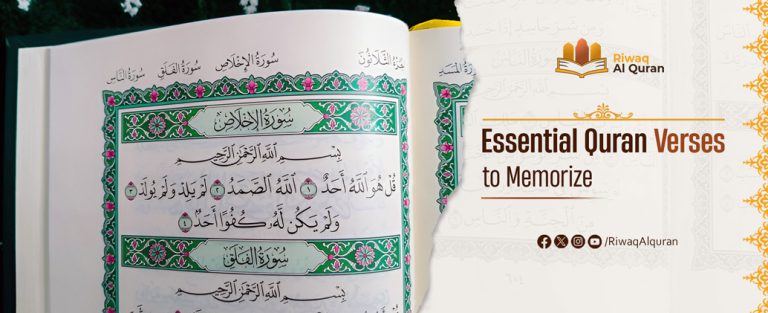 سُورَةُ الإِخْلَاصِ سُورَةُ الفَلَقِ سُورَةُ النَّاسِ
الثَّلَاثُونَ
سُورَةُ المَسَدِ
سُورَةُ الإِخْلَاصِ
بِسْمِ اللَّهِ الرَّحْمَٰنِ الرَّحِيمِ
قُلْ هُوَ اللَّهُ أَحَدٌ ١ اللَّهُ الصَّمَدُ ٢ لَمْ يَلِدْ وَلَمْ يُولَدْ ٣
وَلَمْ يَكُن لَّهُ كُفُوًا أَحَدٌ ٤
سُورَةُ الفَلَقِ
بِسْمِ اللَّهِ الرَّحْمَٰنِ الرَّحِيمِ
Riwaq
Al Quran
Essential Quran Verses
to Memorize
/RiwaqAlquran
٦٠٤